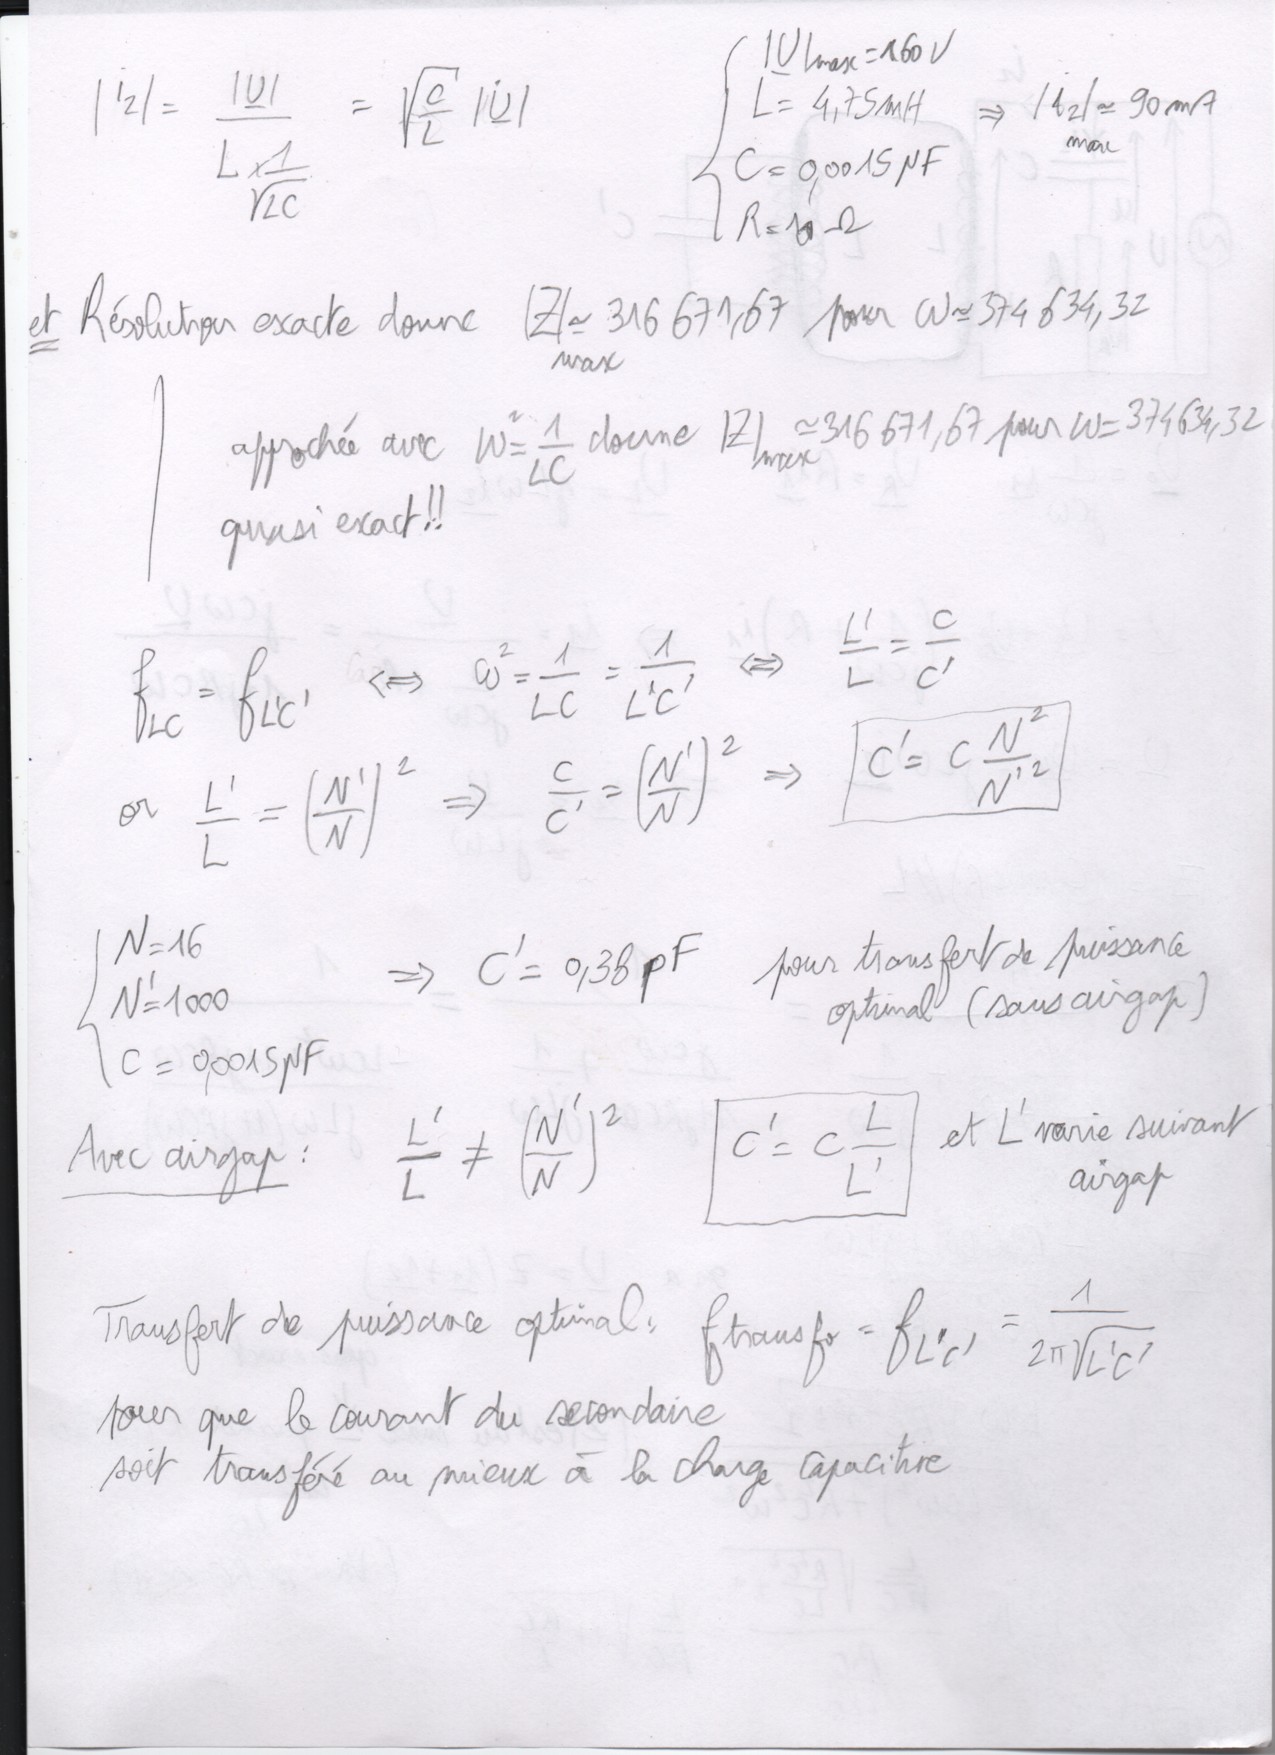 |i2| = |U| / (L × 1/√LC) = √(C/L) |U|
{ |U|max = 160 V
L = 4,75mH ⇒ |i2|max ≃ 90mA
C = 0,0015 µF
R = 10 Ω
et Résolution exacte donne |Z|max ≃ 316 671,67 pour ω ≃ 374 634,32
approchée avec ω² = 1/LC donne |Z|max ≃ 316 671,67 pour ω = 374634,32
quasi exact!!
fLC = fL'C' ⇔ ω² = 1/LC = 1/L'C' ⇔ L'/L = C/C'
or L'/L = (N'/N)² ⇒ C/C' = (N'/N)² ⇒ C' = C N²/N'²
{ N=16
N'=1000 ⇒ C' = 0,38 pF pour transfert de puissance
optimal (sans airgap)
C = 0,0015µF
Avec airgap : L'/L ≠ (N'/N)² C' = C L/L' et L' varie suivant
airgap
Transfert de puissance optimal: ftransfo = fL'C' = 1/(2π√L'C')
pour que le courant du secondaire
soit transféré au mieux à la charge capacitive